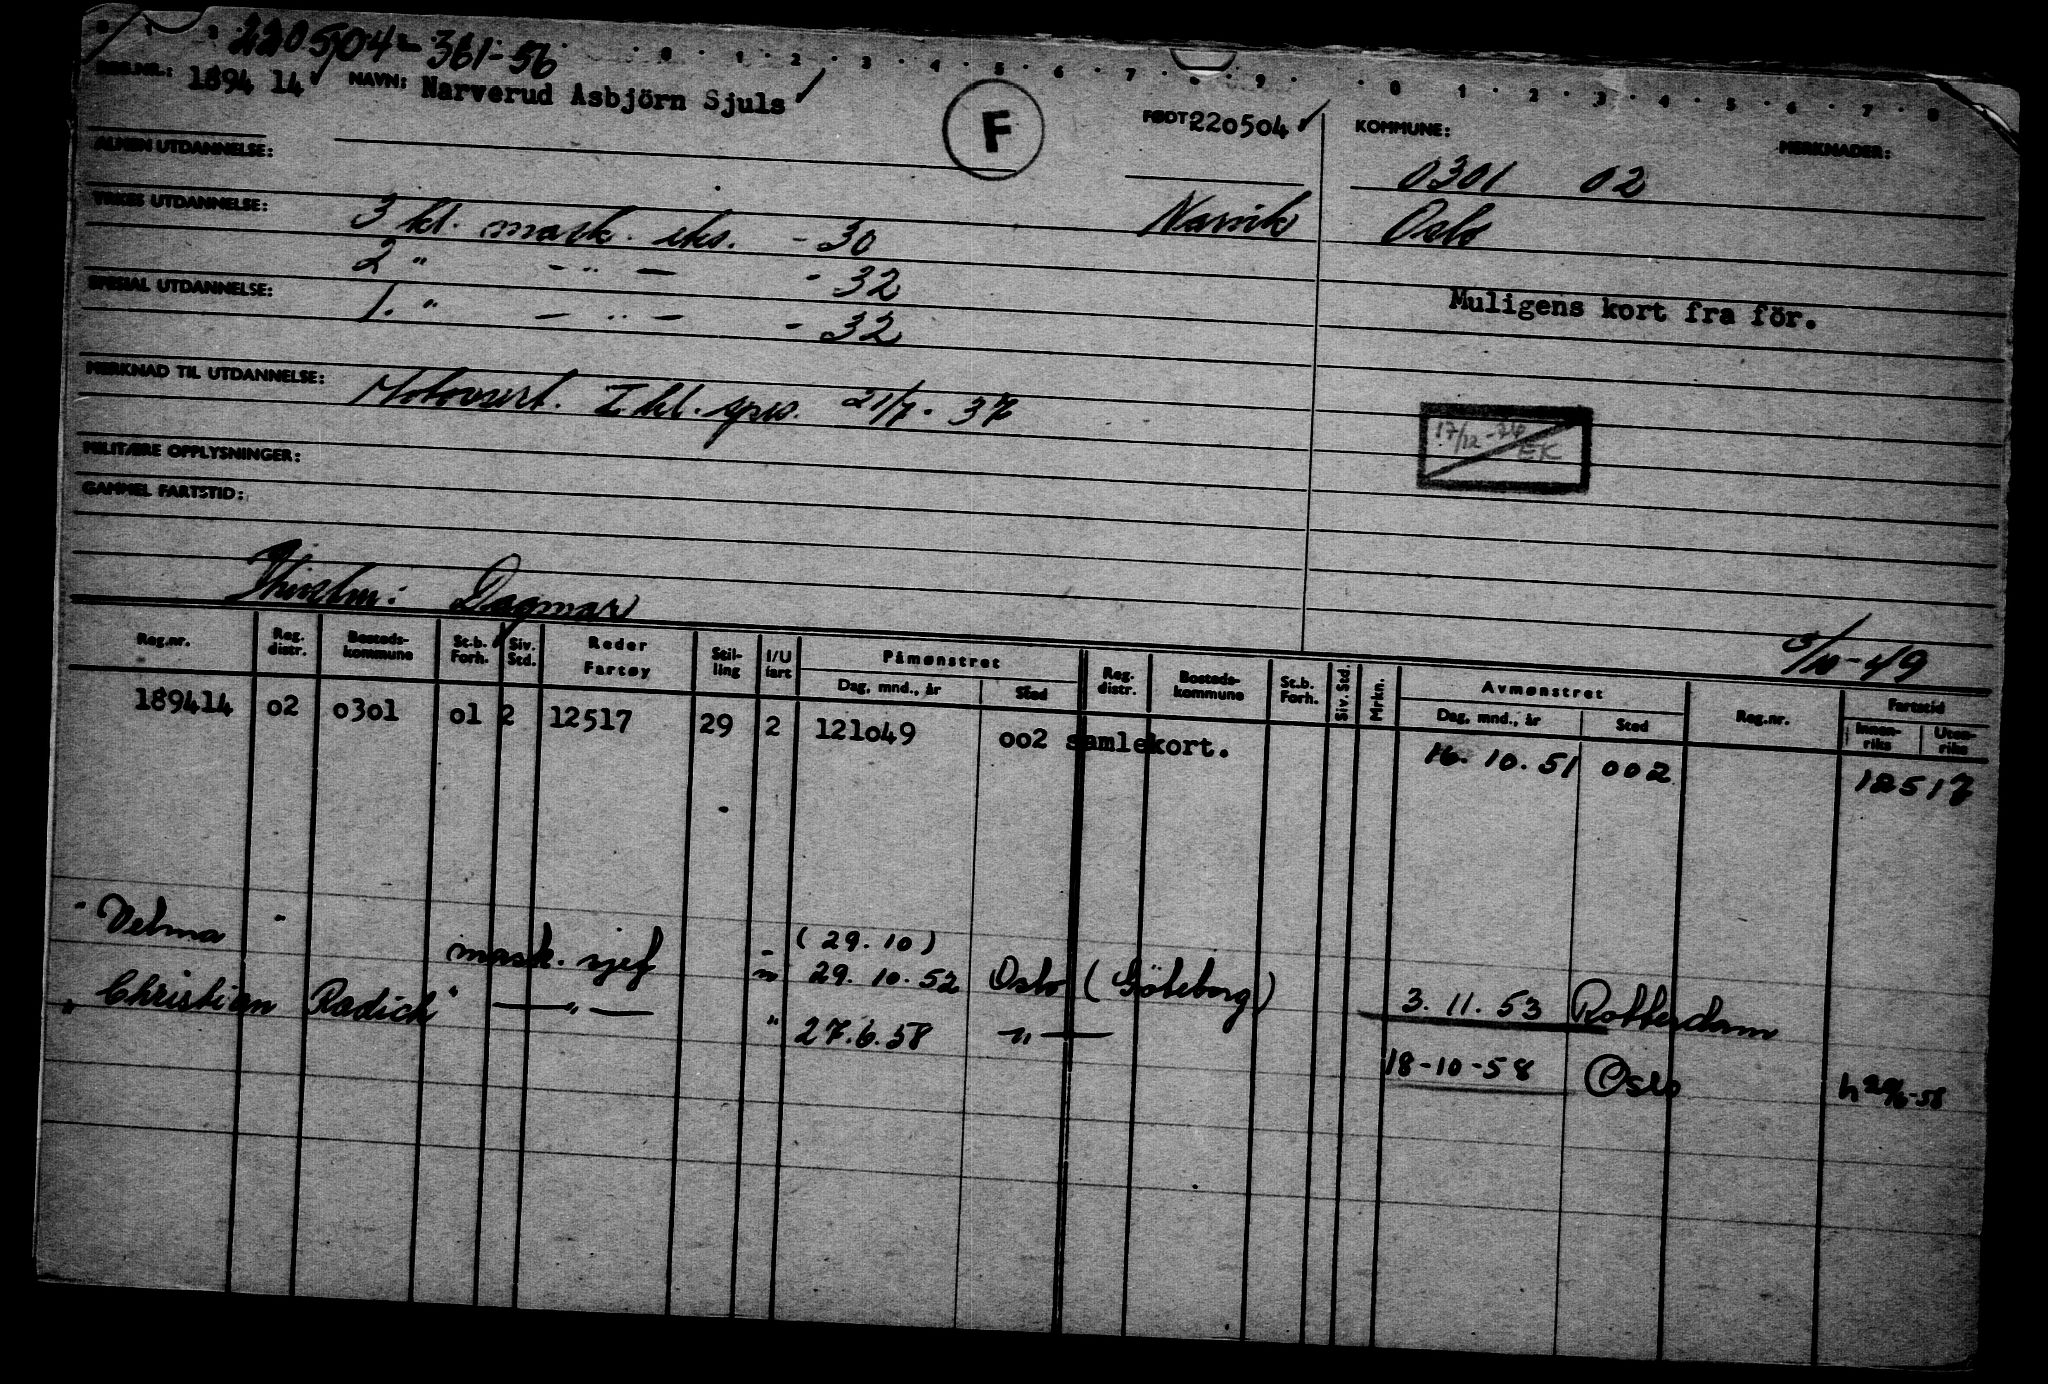 220504-361-56
0 · 1 · 2 · 3 · 4 · 5 · 6 · 7 · 8 · 9 · · 0 1 · 2 · 3 · 4 · 5 · 6 · 7 · 8
REG.NR.: 1894 14 NAVN: Narverud Asbjörn Sjuls F FØDT 220504 KOMMUNE: MERKNADER:
0301 02
ALMEN UTDANNELSE:
YRKES UTDANNELSE: 3 kl. mask. eks. - 30 Narvik Oslo
2 " - " - - 32
SPESIAL UTDANNELSE: 1. " - " - - 32
Muligens kort fra för.
MERKNAD TIL UTDANNELSE: Motorsert. I kl. 21/7. 37
17/12 - 76 EK
MILITÆRE OPPLYSNINGER:
GAMMEL FARTSTID:
Dagmar
5/10-49
Reg.nr. Reg. distr. Bosteds-kommune St.b. Forh. Siv. Std. Reder Fartøy Stil-ling I/U fart Påmønstret Dag, mnd., år Sted Reg. distr. Bosteds-kommune St.b. Forh. Siv. Std. Mrkn. Avmønstret Dag, mnd., år Sted Reg.nr. Fartstid Innen-riks Uten-riks
189414 o2 o3o1 o1 2 12517 29 2 121o49 oo2 samlekort. 16. 10. 51 002 12517
(29. 10)
" Velma " mask. sjef " 29. 10. 52 Oslo (Göteborg) 3. 11. 53 Rotterdam
" Christian Radich " — " — " 27. 6. 58 — " — 18-10-58 Oslo